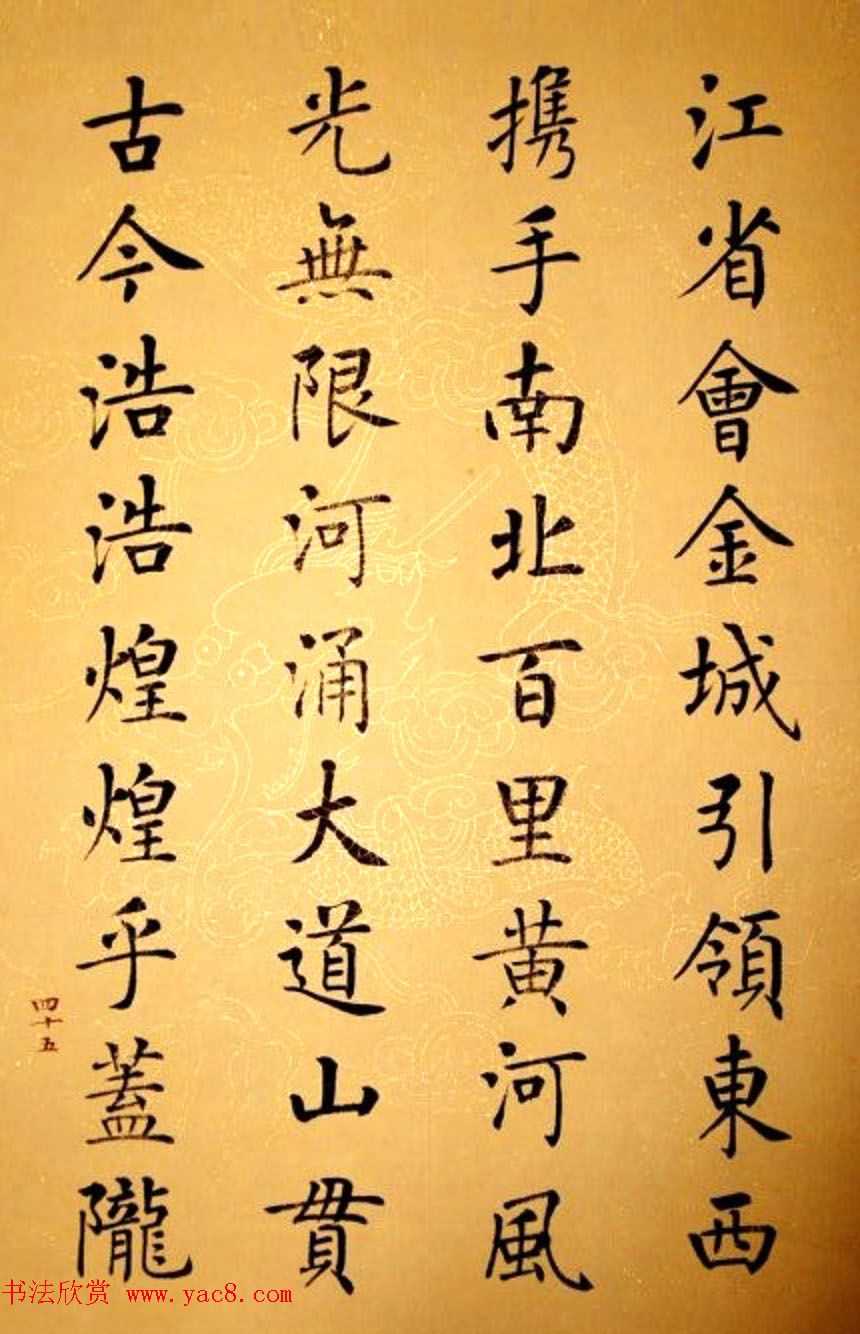 江省會金城引領東西
携手南北百里黄河風
光無限河涌大道山貫
古今浩浩煌煌乎蓋隴
四十五
书法欣赏 www.yac8.com